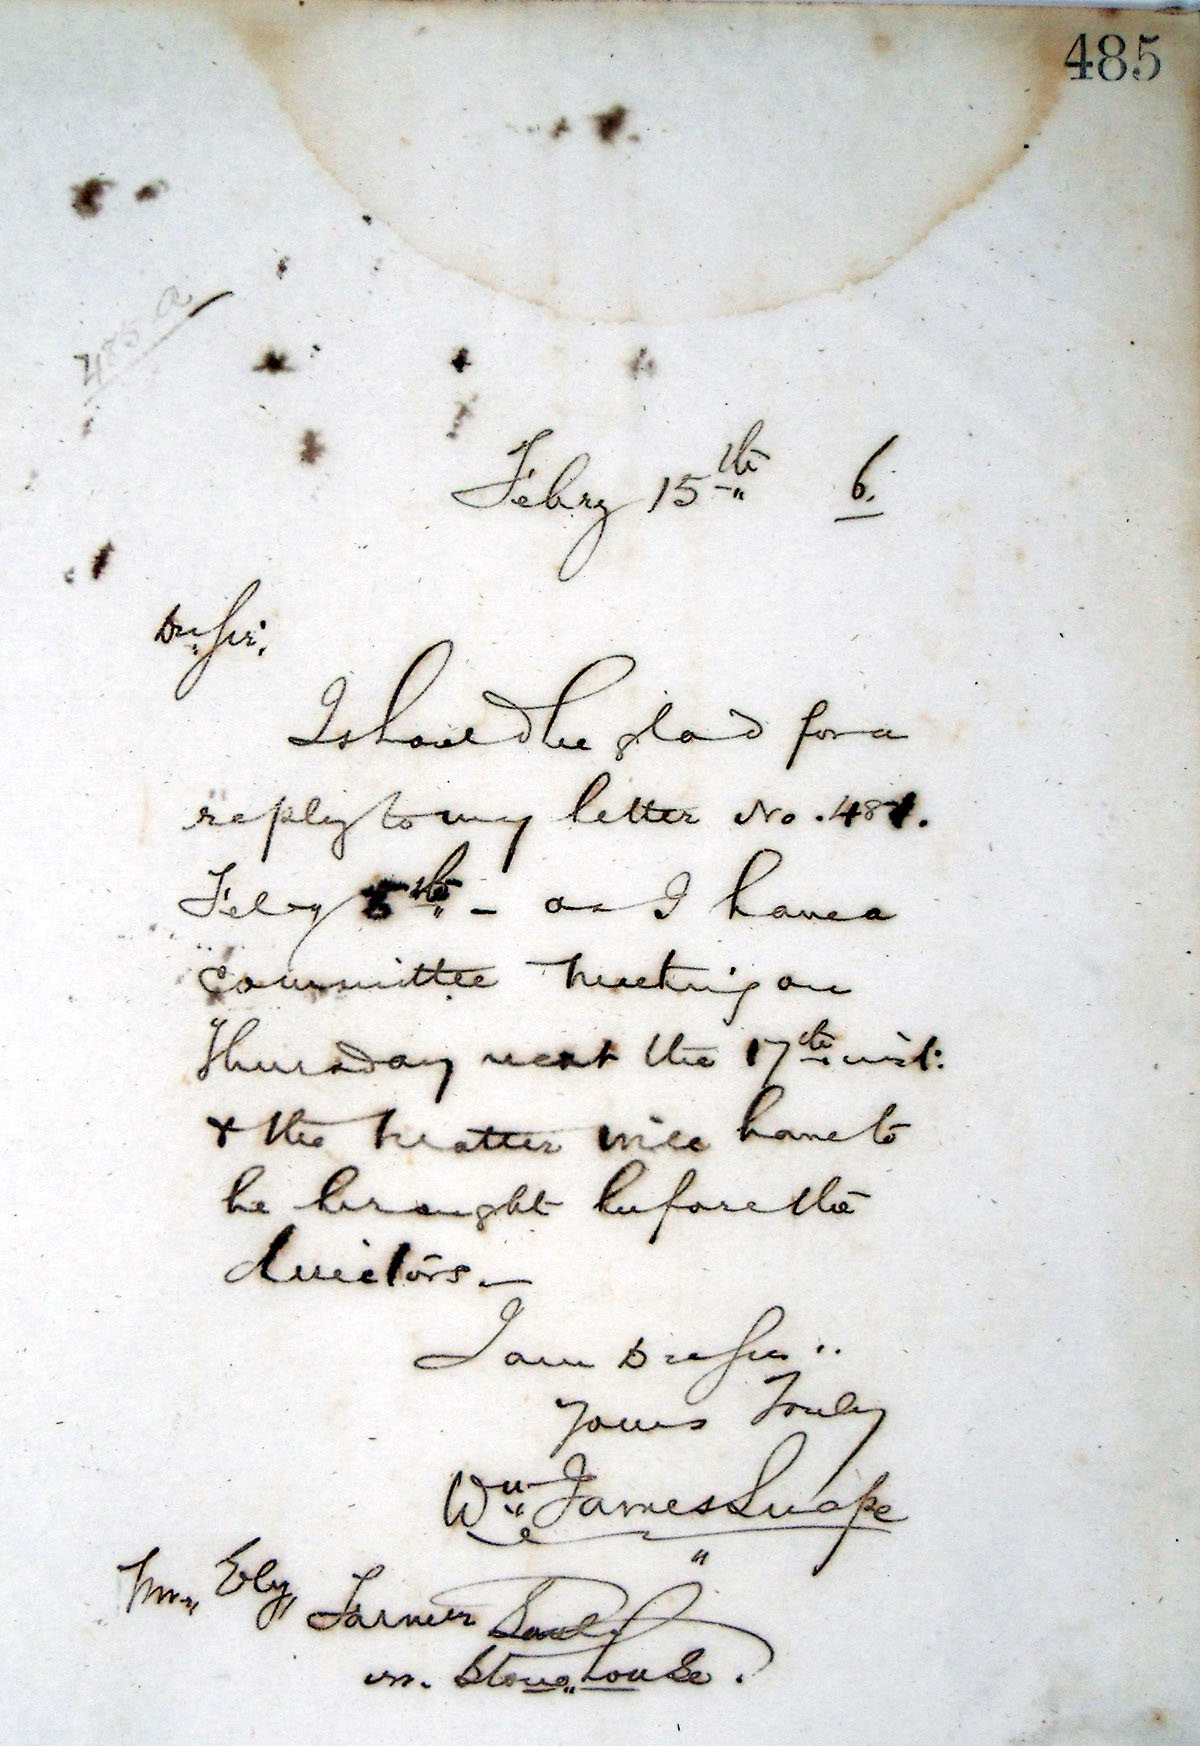 485
485 a
Febry 15th 6.
Dr Sir:
I should be glad for a
reply to my letter No. 481.
Feby 5th - as I have a
committee meeting on
Thursday next the 17th inst:
& the matter will have to
be brought before the
directors. -
I am Dr Sir ..
Yours Truly
Wm James Snape
Mr. Ely, Farmer
nr. Stonehouse.